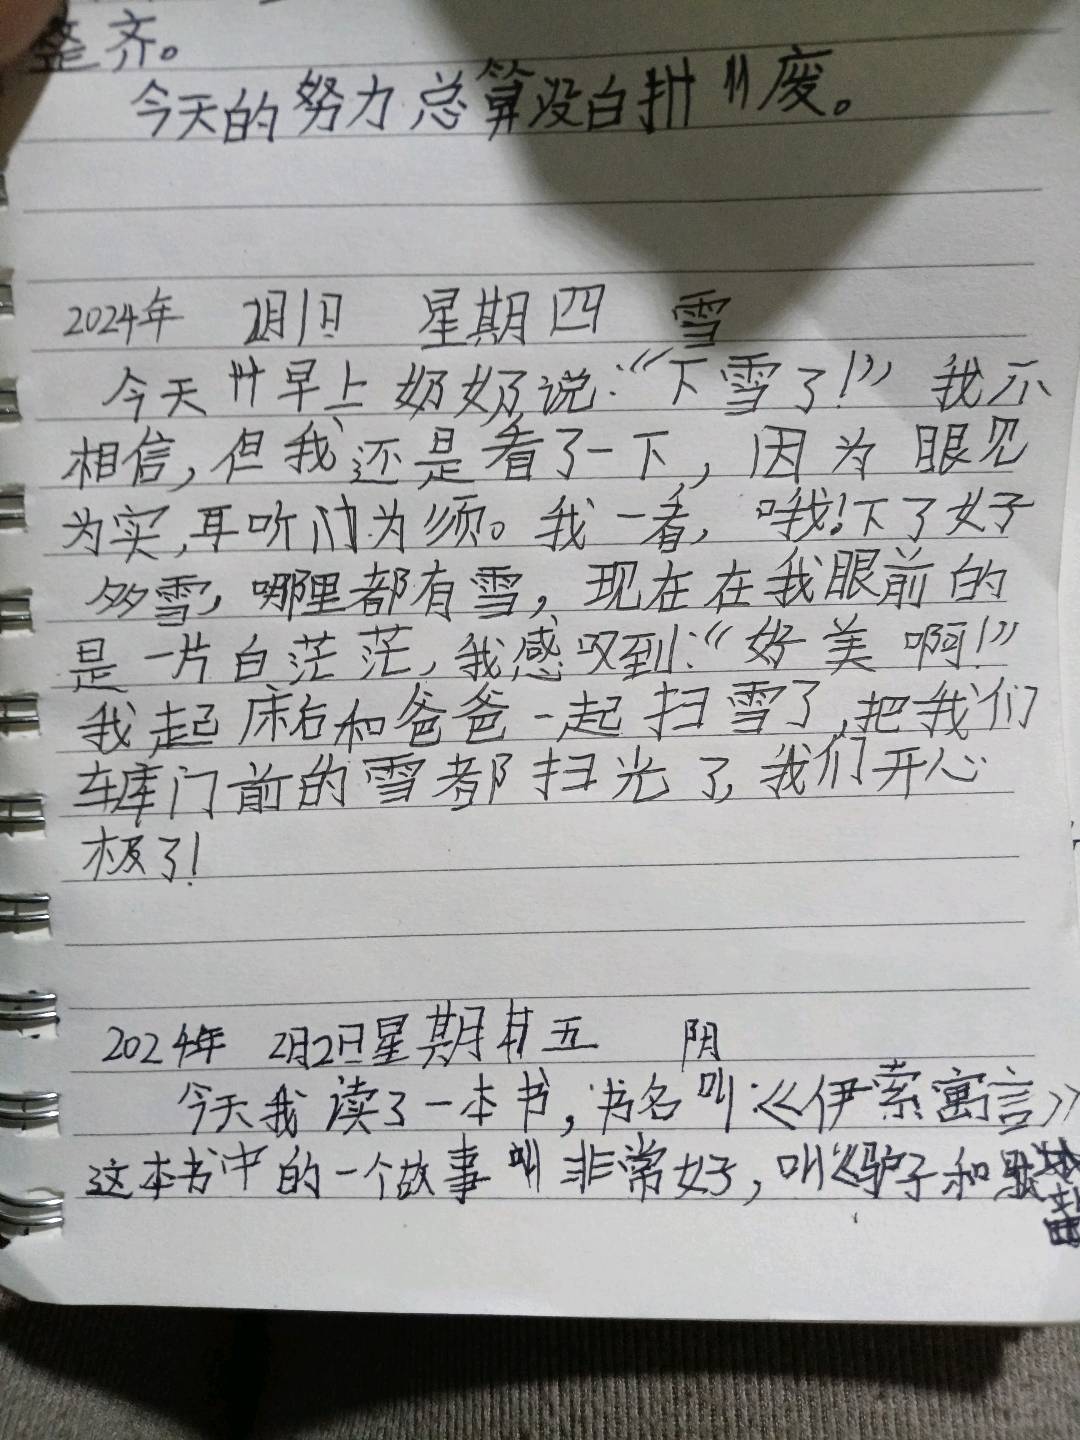 整齐。
今天的努力总算没白废。
2024年 2月1日 星期四 雪
今天早上奶奶说:“下雪了!”我不
相信,但我还是看了一下,因为眼见
为实,耳听为须。我一看,哦!下了好
多雪,哪里都有雪,现在在我眼前的
是一片白茫茫,我感叹到:“好美啊!”
我起床后和爸爸一起扫雪了,把我们
车库门前的雪都扫光了,我们开心
极了!
2024年 2月2日星期五 阴
今天我读了一本书,书名叫:《伊索寓言》
这本书中的一个故事非常好,叫《驴子和